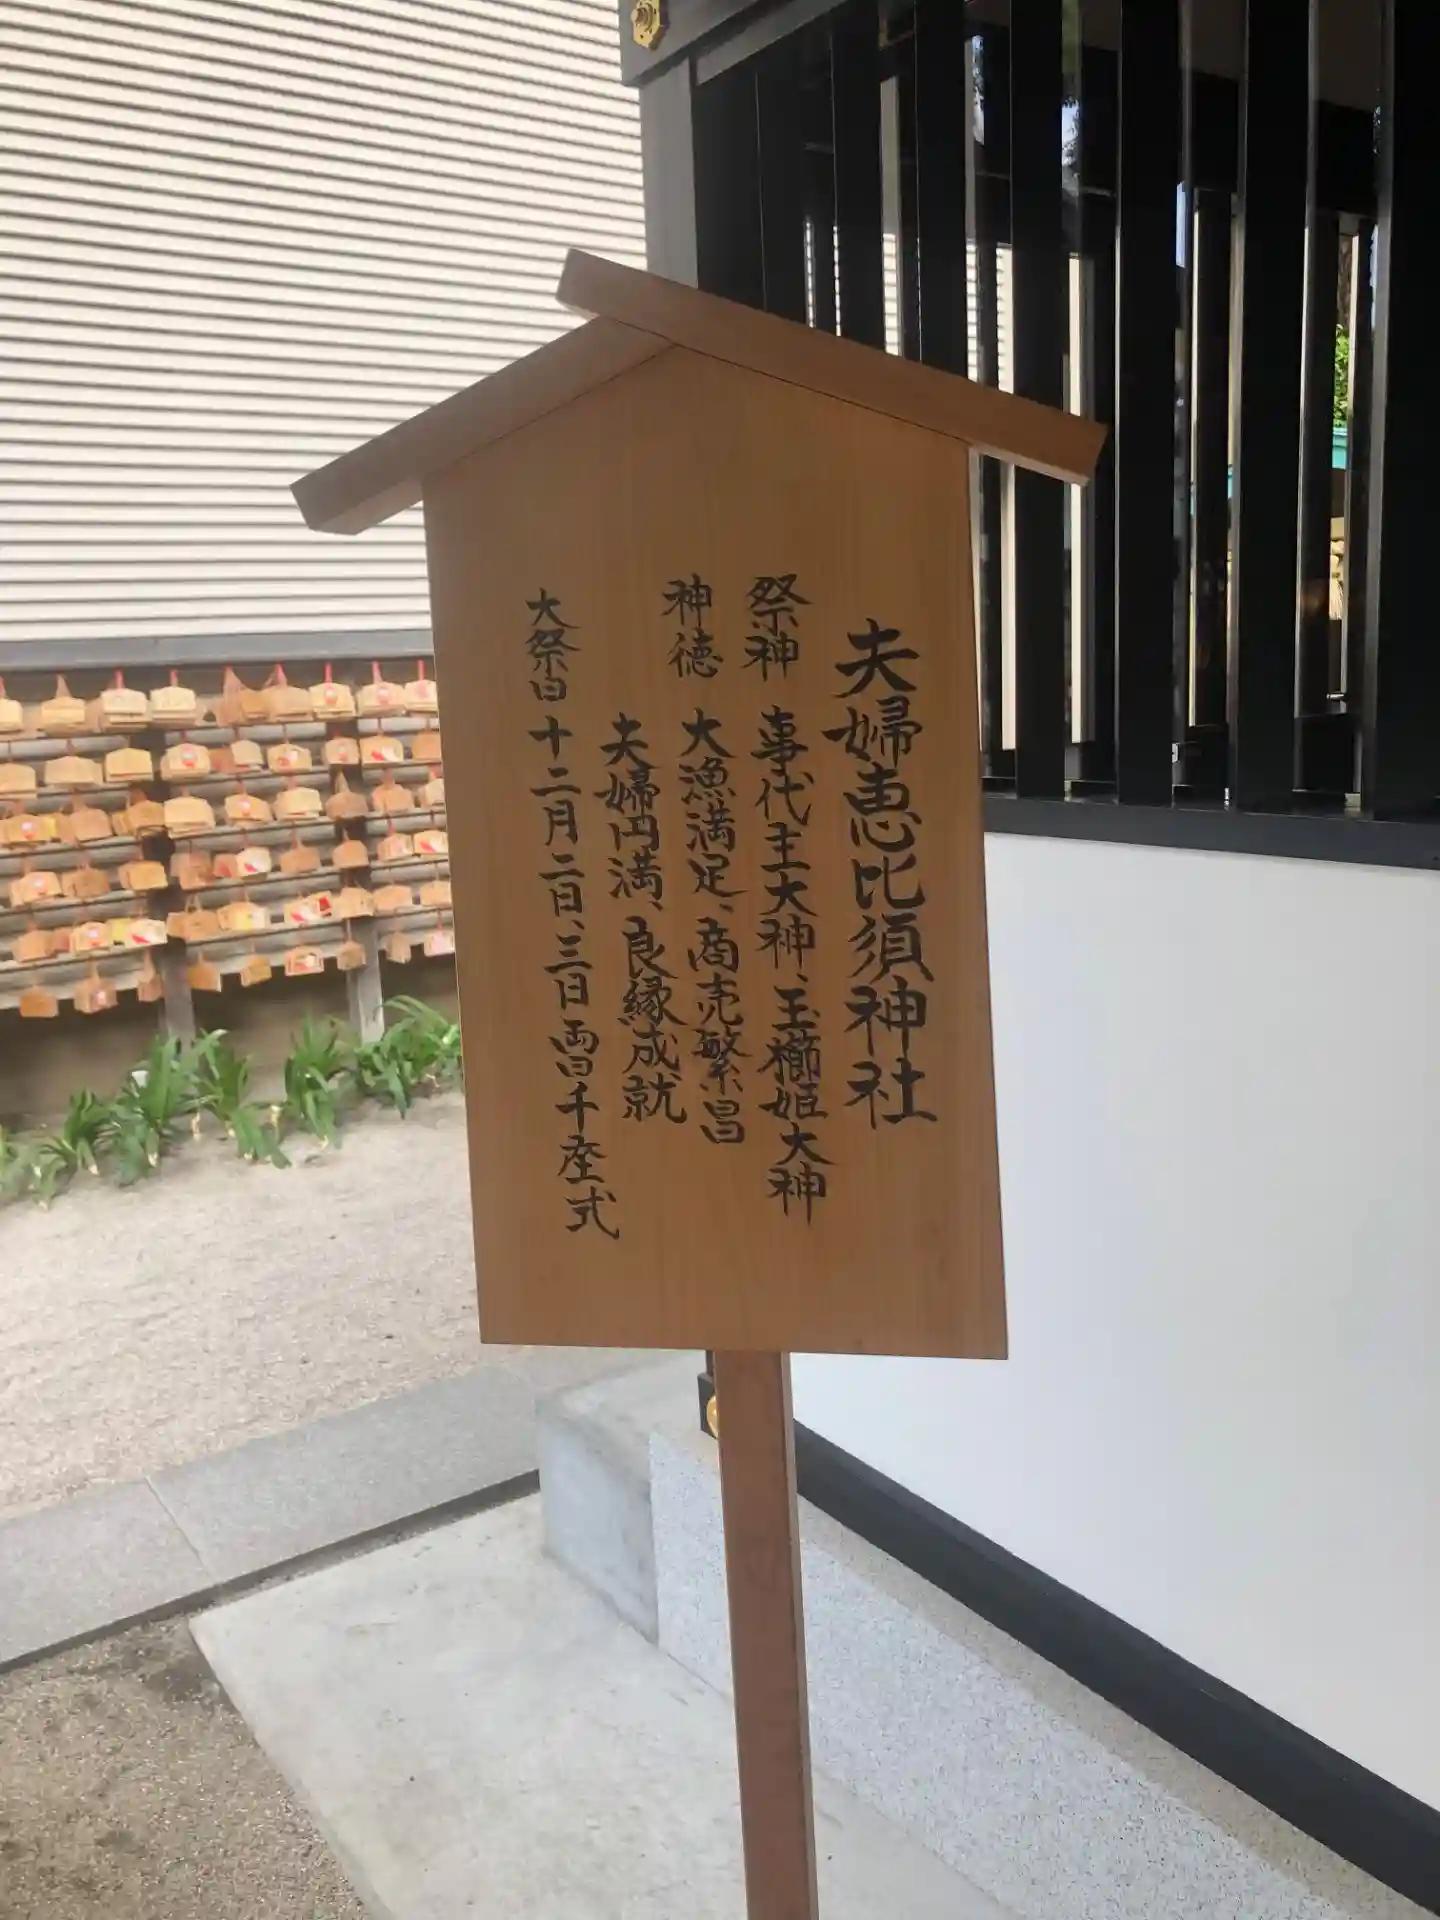 夫婦恵比須神社
祭神 事代主大神、玉櫛姫大神
神徳 大漁満足、商売繁昌
夫婦円満、良縁成就
大祭日 十二月二日、三日両日千座式